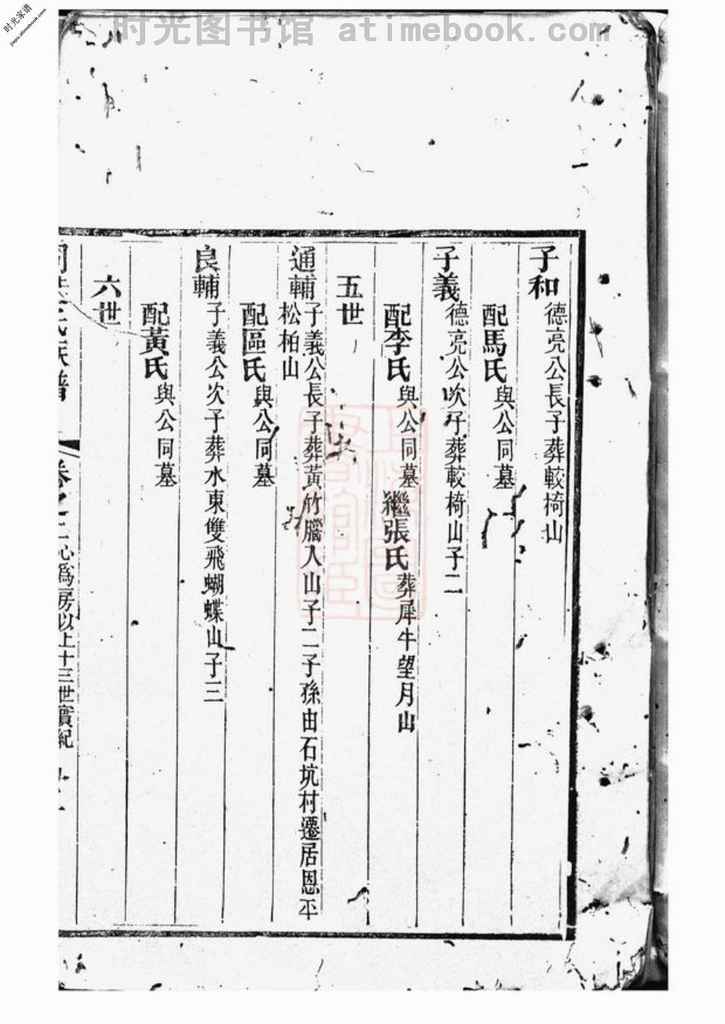 时光图书馆 atimebook.com
时光家谱
子和 德亮公長子葬較椅山
配馬氏 與公同墓
子義 德亮公次子葬較椅山子二
配李氏 與公同墓 繼張氏 葬犀牛望月山
五世
通輔 子義公長子葬黃竹腦入山子二子孫由石坑村遷居恩平
松柏山
配區氏 與公同墓
良輔 子義公次子葬水東雙飛蝴蝶山子三
配黃氏 與公同墓
六世
氏族譜 卷之二 心爲房以上十三世實紀